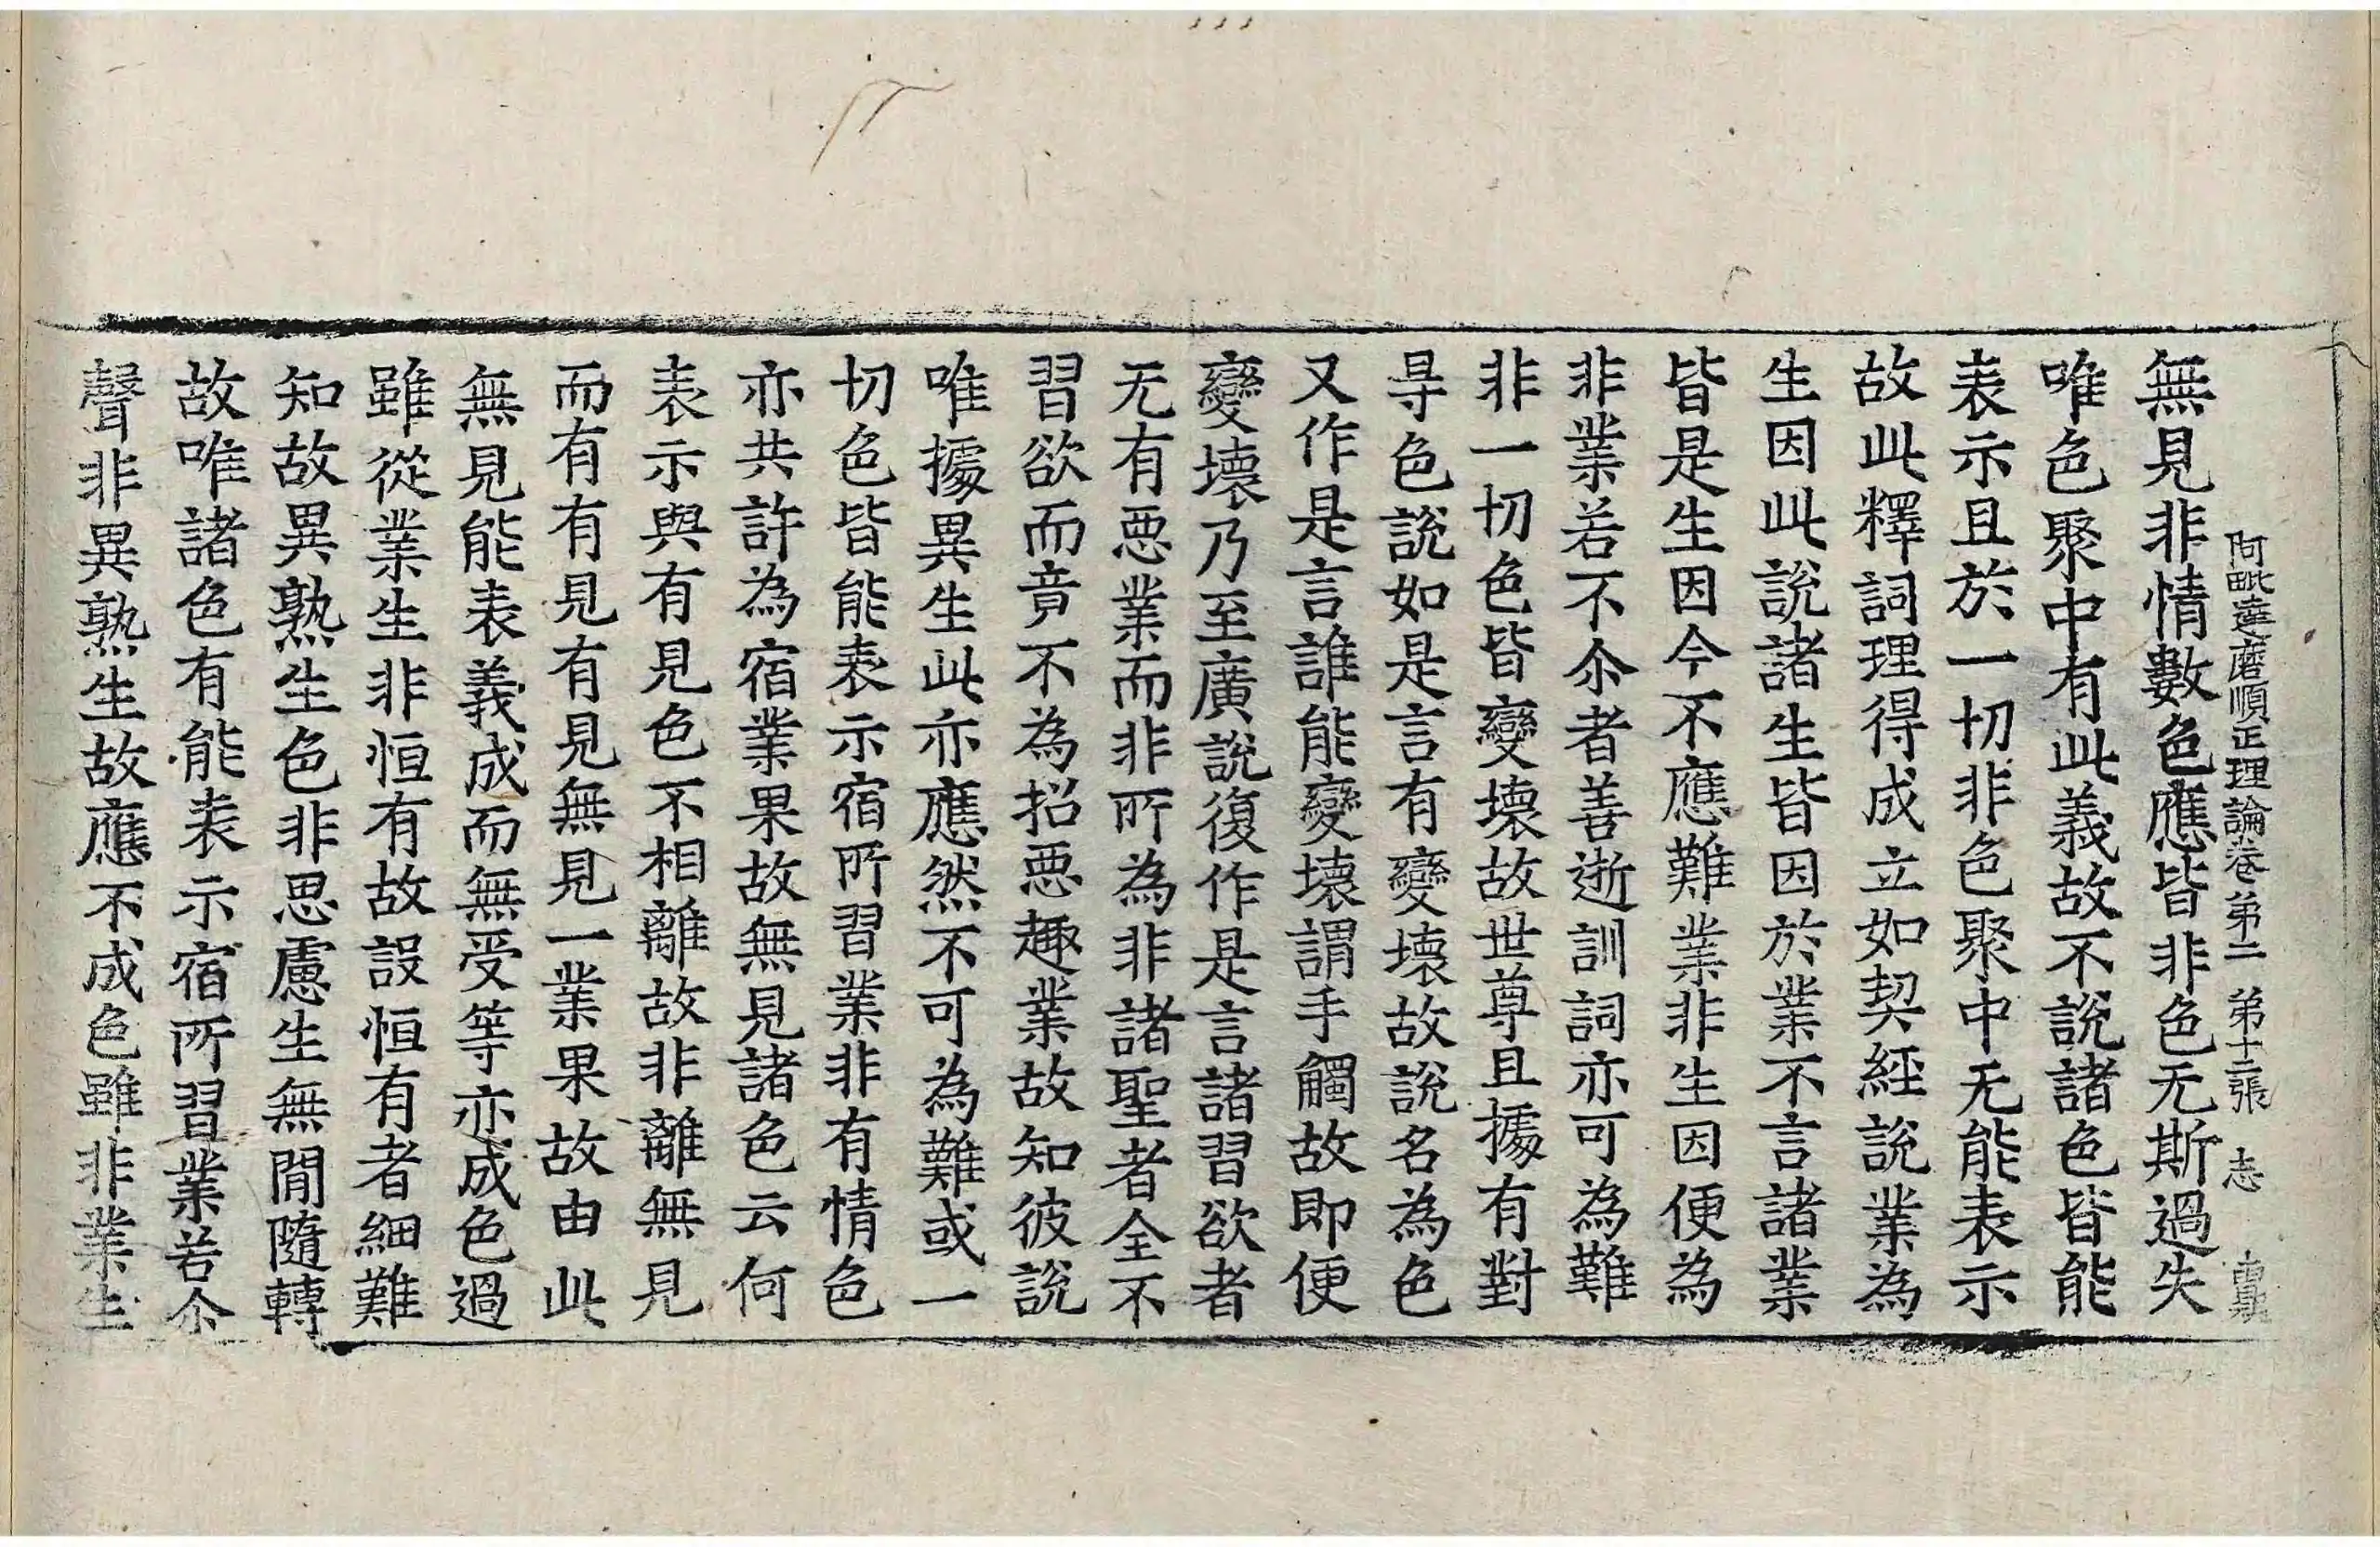 阿毗達磨順正理論卷弟二　弟十二張　志
無見非情數色應皆非色无斯過失
唯色聚中有此義故不說諸色皆能
表示且於一切非色聚中无能表示
故此釋詞理得成立如契經說業為
生因此說諸生皆因於業不言諸業
皆是生因今不應難業非生因便為
非業若不尒者善逝訓詞亦可為難
非一切色皆變壞故世尊且據有對
㝵色說如是言有變壞故說名為色
又作是言誰能變壞謂手觸故即便
變壞乃至廣說復作是言諸習欲者
无有惡業而非所為非諸聖者全不
習欲而竟不為招惡趣業故知彼說
唯據異生此亦應然不可為難或一
切色皆能表示宿所習業非有情色
亦共許為宿業果故無見諸色云何
表示與有見色不相離故非離無見
而有有見有見無見一業果故由此
無見能表義成而無受等亦成色過
雖從業生非恒有故設恒有者細難
知故異熟生色非思慮生無閒隨轉
故唯諸色有能表示宿所習業若尒
聲非異熟生故應不成色雖非業生